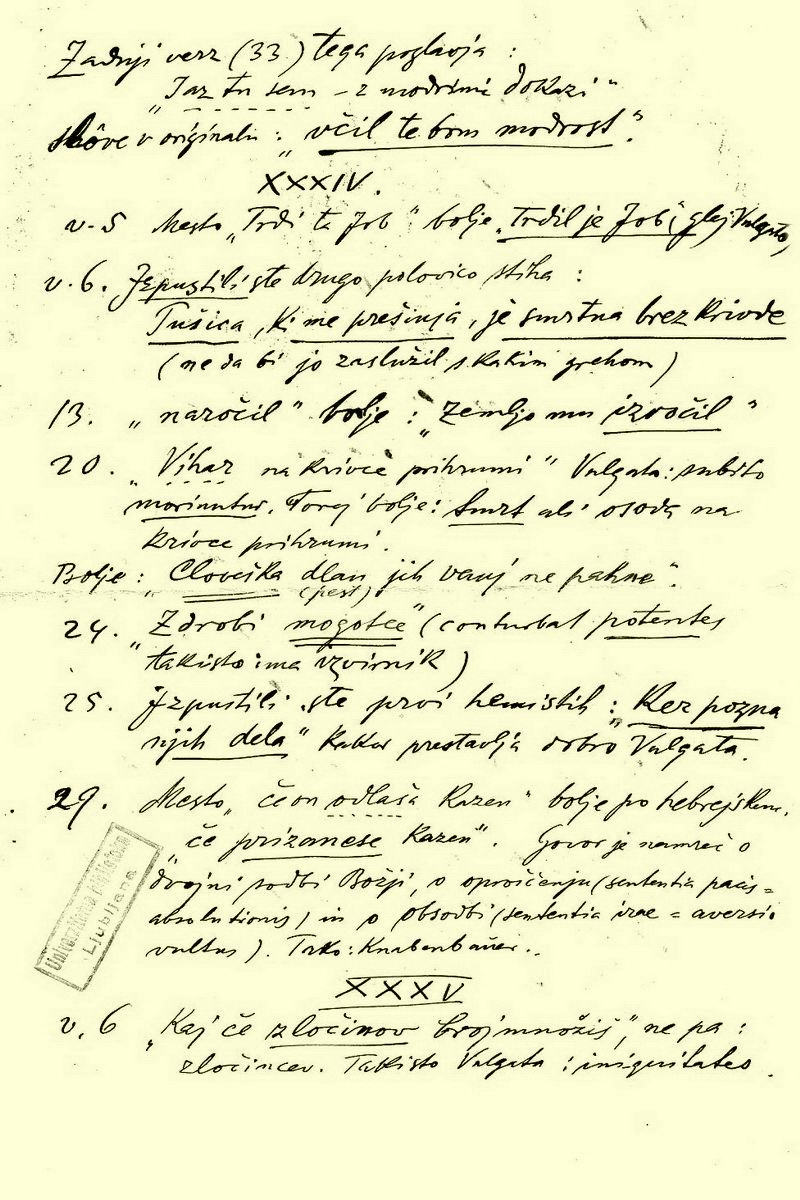 Zadnji verz (33) tega poglavja :
„Jaz tu sem – z modrimi dokazi“
slove v originalu : „včil te bom modrost“.
XXXIV.
v. 5 Mesto „Trdi ta Job“ bolje „trdil je Job“, glej Vulgato,
v. 6. Izpustili ste drugo polovico stiha :
Tušica, ki me prešinja, je smrtna brez krivde
(ne da bi jo zaslužil s kakim grehom)
13. „naročil“ bolje : „zemljo mu izročil“
20. „Vihar na krivce prihrumi“ Vulgata: subito
moriuntur. Torej bolje: Smrt ali osoda na
krivce prihrumi.
Bolje : „Človeška dlan jih vanj ne pahne“.
(pest)
24. „Zdrobi mogotce“ (conturbat potentes
takisto ima izvirnik)
25. Izpustili ste prvi hemistih : „Ker pozna
njih dela“ kakor prestavlja dobro Vulgata.
29. Mesto „če on odlaša kazen“ bolje po hebrejskem.
„če prizanese kazen“. Govor je namreč o
dvojni sodbi Božji, o oproščenju (sententia pacis =
absolutionis) in o obsodbi (sententia irae = aversio
vultus). Tako: Knabenbauer.
Univerzitetna biblioteka
Ljubljana
XXXV
v. 6 „Kaj če zločinov broj množiš“, ne pa :
zločincev. Takisto Vulgata : iniquitates.